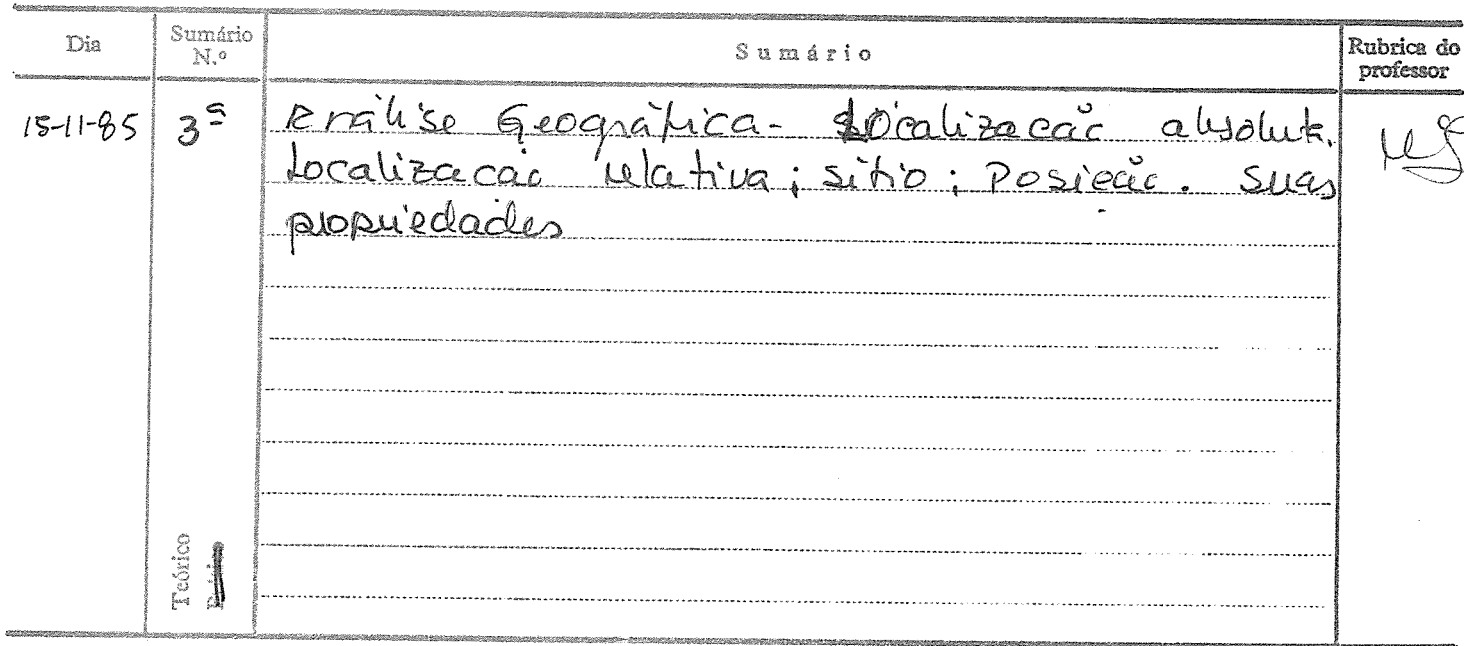 Dia Sumário N.º Sumário Rubrica do professor
15-11-85 3ª Análise Geográfica - Localização absolut.
Localização relativa; sitio; Posição. Suas
propriedades
Teórico